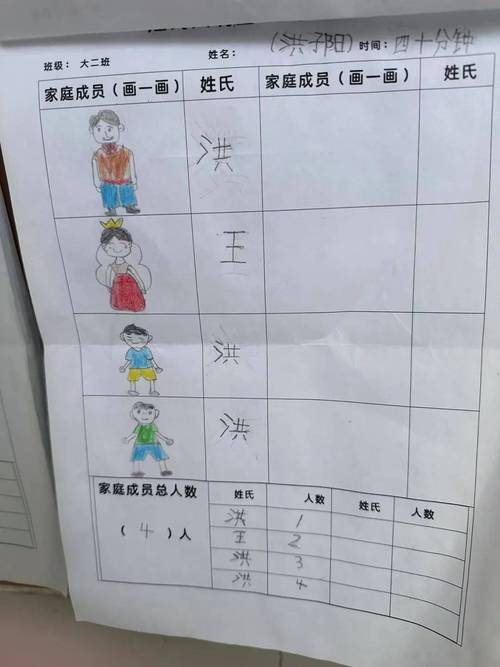 班级: 大二班 姓名: (洪子阳) 时间: 四十分钟
家庭成员(画一画) 姓氏 家庭成员(画一画) 姓氏
洪
王
洪
洪
家庭成员总人数 姓氏 人数 姓氏 人数
(4)人
洪 1
王 2
洪 3
洪 4